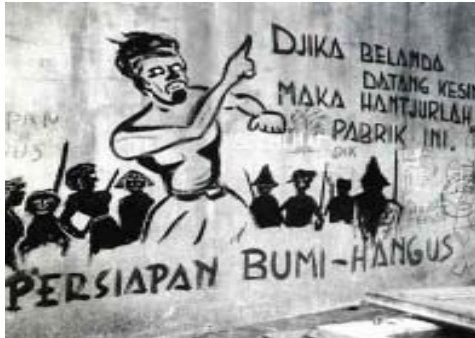 DJIKA BELANDA
DATANG KESIN
MAKA HANTJURLAH
PABRIK INI.
DIK
PERSIAPAN BUMI-HANGUS